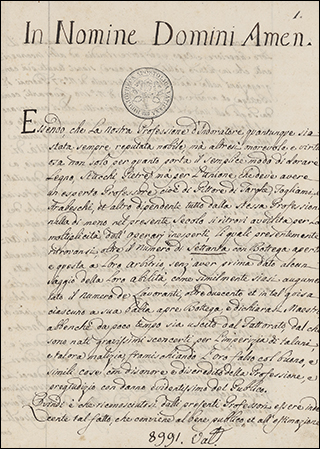 1.
In Nomine Domini Amen.
Essendo che La nostra Professione d'Indoratore quantunque sia
stata sempre reputata nobile, mà altresì morevole, e virtuo
sa non solo per quanto porta il semplice modo di dorare
Legno, Stucchi Pietre, mà per l'unione, che deve avere
un esperto Professore, cioè di Pittore di
et altro dipendente tutto dalla stessa Profession
nulla di meno nel presente Secolo si ritrovi avvilita per La
moltiplicità dell'operarj inesperti, li quali presentemente
ritrovansi, oltre il numero di Settanta con Bottega aperta
e questa a Loro Arbitrio, senz'aver prima dato alcun
saggio della Loro abilità, come similmente siasi augumen
tato il numero de Lavoranti, oltre ducento, et in tal guisa
ciascuno a sua voglia apre Bottega, e dichiarasi Maestro
abenchè da poco tempo sia uscito dal Fattorato, dal che
sono nati gravissimi sconcerti, per l'imperizia di taluni
e talora malizia framischiando L'oro falso col buono, e
simili cose con disonore, e discredito della Professione, e
pregiudizio con danno evidentissimo del Publico.
Quindi è che riconosciutosi dalli presenti Professori essere inde
cente tal fatto, che conviene al bene publico, et all'estimazione
8991. Vat.